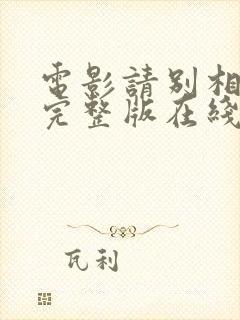 電影請別相
完整版在綫
瓦利